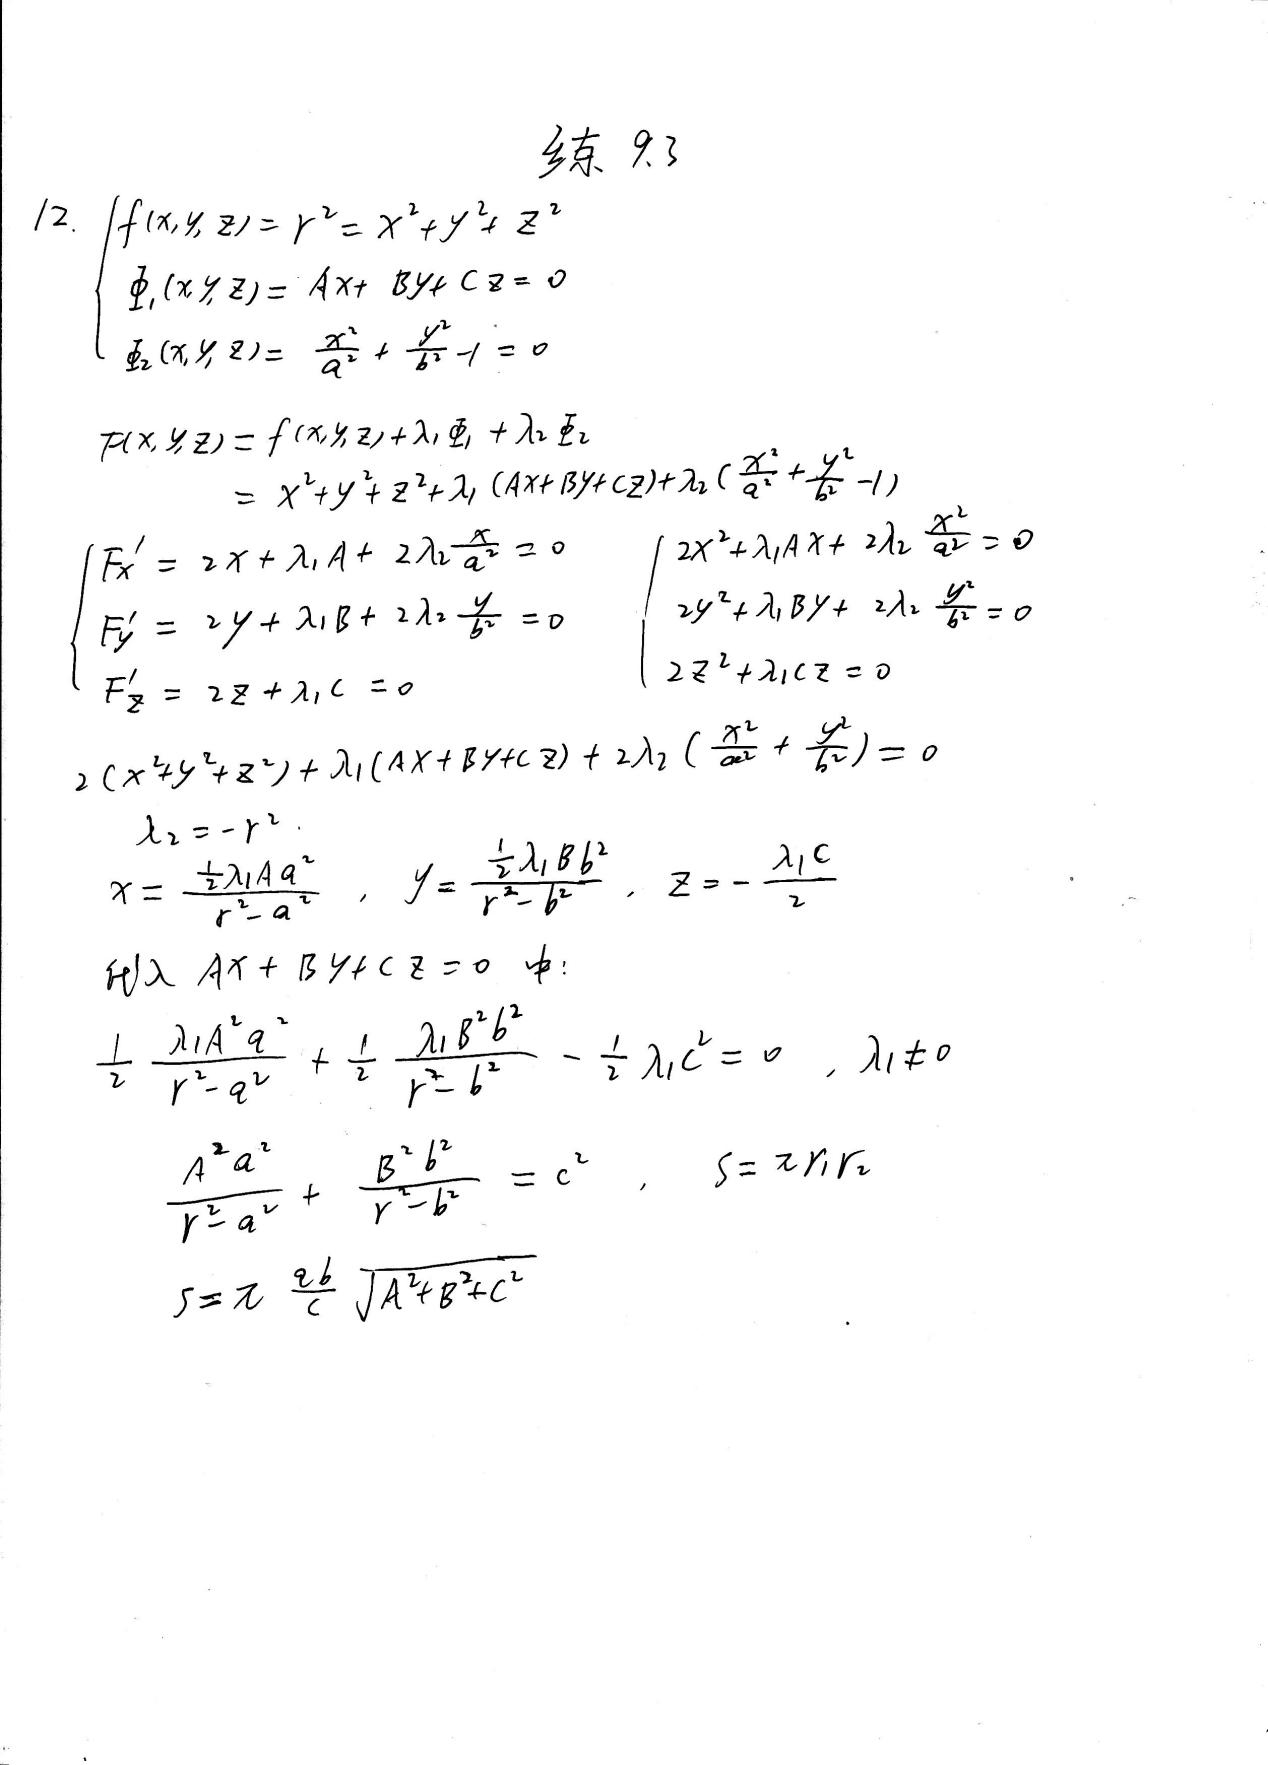 练 9.3
12. f(x,y,z)=r²=x²+y²+z²
Φ₁(x,y,z)= Ax+By+Cz=0
Φ₂(x,y,z)= x²/a² + y²/b² -1=0
F(x,y,z)=f(x,y,z)+λ₁Φ₁+λ₂Φ₂
= x²+y²+z²+λ₁(Ax+By+Cz)+λ₂(x²/a²+y²/b²-1)
F'x = 2x+λ₁A+2λ₂ x/a² =0 2x²+λ₁Ax+2λ₂ x²/a² =0
F'y = 2y+λ₁B+2λ₂ y/b² =0 2y²+λ₁By+2λ₂ y²/b² =0
F'z = 2z+λ₁C =0 2z²+λ₁Cz=0
2(x²+y²+z²)+λ₁(Ax+By+Cz)+2λ₂(x²/a²+y²/b²)=0
λ₂=-r².
x= ½λ₁Aa²/(r²-a²) , y= ½λ₁Bb²/(r²-b²) , z=- λ₁C/2
代入 Ax+By+Cz=0 中:
1/2 λ₁A²a²/(r²-a²) + 1/2 λ₁B²b²/(r²-b²) - 1/2 λ₁C²=0 , λ₁≠0
A²a²/(r²-a²) + B²b²/(r²-b²) = C² , S=πr₁r₂
S=π ab/C √(A²+B²+C²)